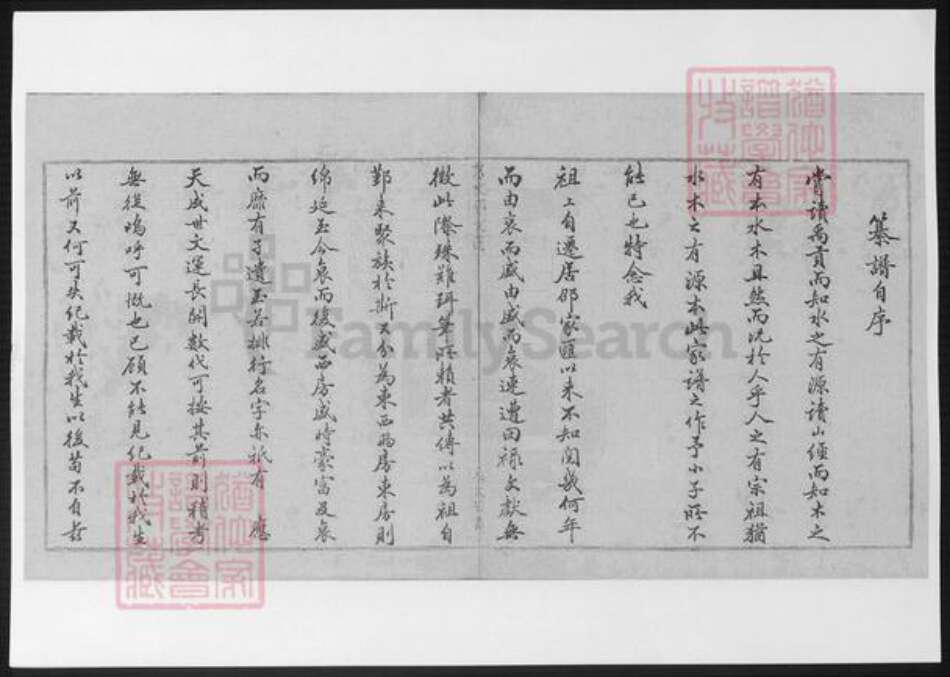 纂譜自序
嘗讀禹貢而知水之有源讀山經而知木之
有本水木且然而況於人乎人之有宗祖猶
水木之有源本此家譜之作予小子所不
能已也特念我
祖上自遷居邵家匯以來不知閱幾何年
而由衰而盛由盛而衰連遭回祿文獻無
徵此際殊難珥筆所賴者共傳以為祖自
鄞來聚族於斯又分為東西兩房東房則
綿延至今衰而復盛西房盛時豪富及衰
而靡有孑遺至若排行名字亦祇有 應
天成世文運長開數代可按其前則稽考
無從嗚呼可慨也已顧不能見紀載於我生
以前又何可失紀載於我生以後苟不自
猶他家
譜學會
收藏
猶他家
譜學會
收藏
FamilySearch